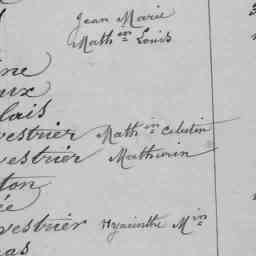 Jean Marie
Math.in Louis
ine
aux
lais
vestrier Math.in Célestin
vestrier Mathurin
ton
ée
vestrier Hyacinthe M.in
as